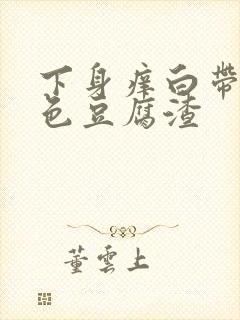 下身痒白带
色豆腐渣
董雲上